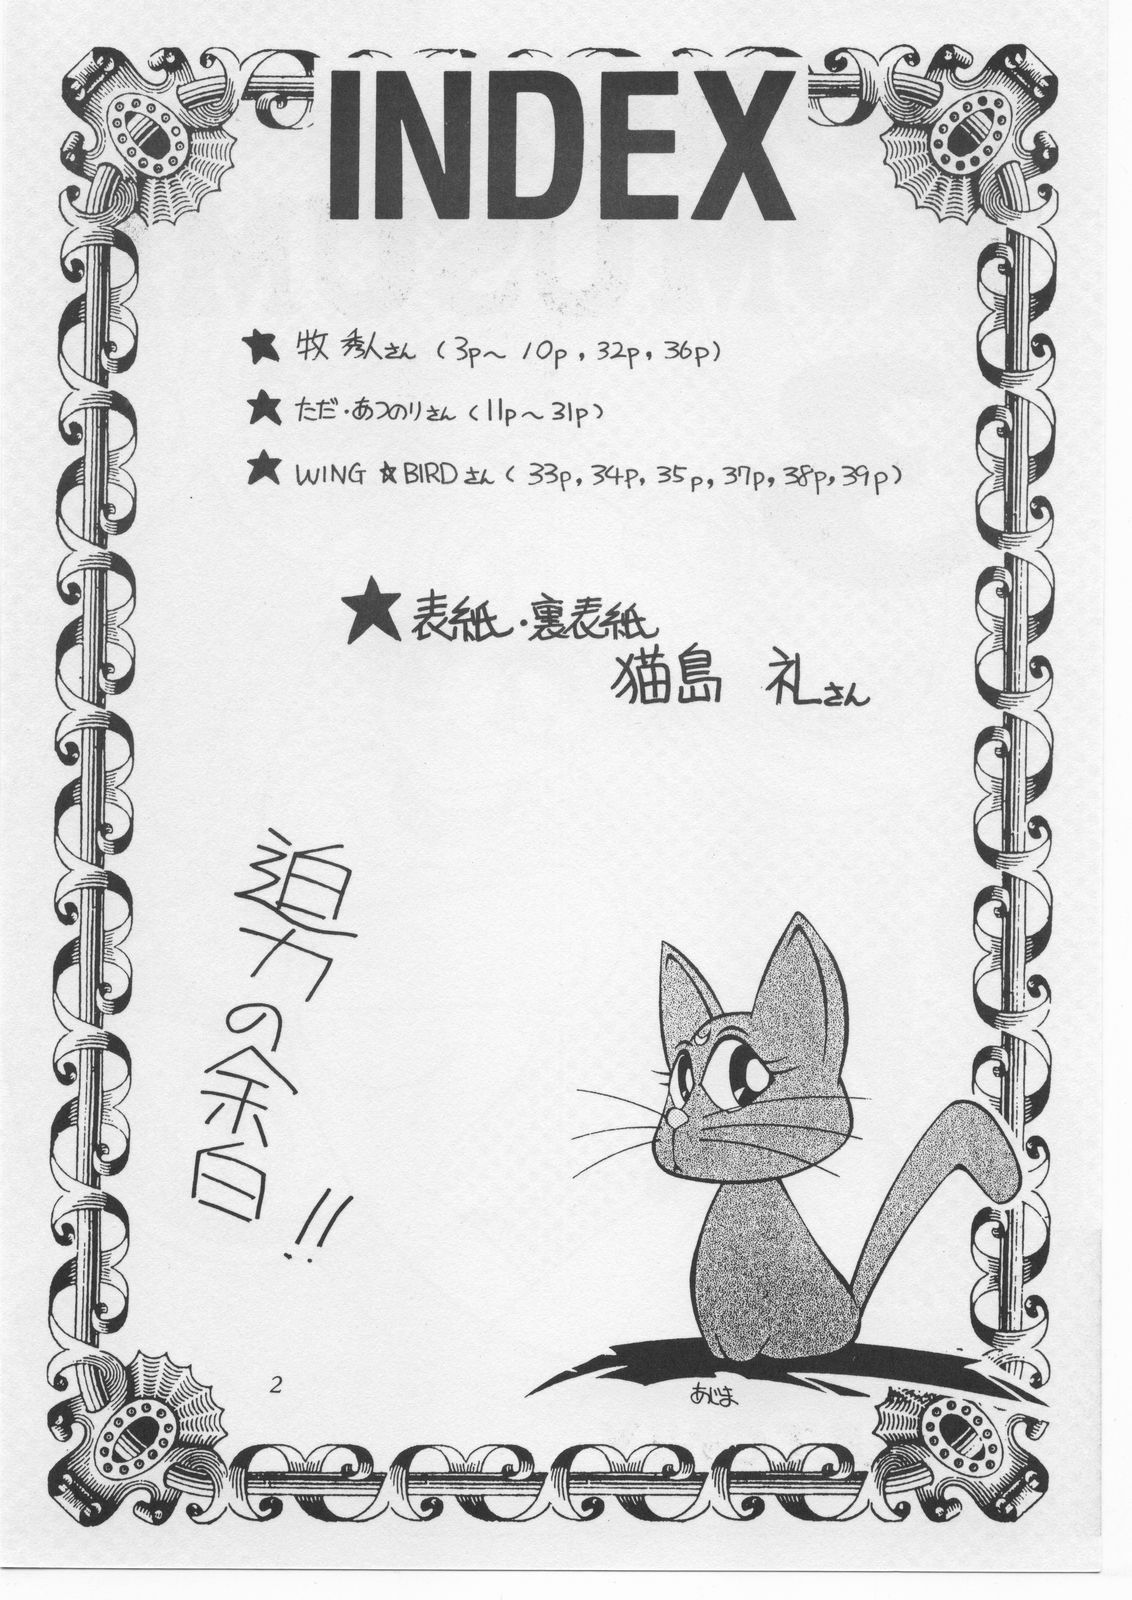 INDEX
★ 牧 秀人さん (3p～10p, 32p, 36p)
★ ただ・あつのりさん (11p～31p)
★ WING☆BIRDさん (33p, 34p, 35p, 37p, 38p, 39p)
★表紙・裏表紙
猫島 礼さん
迫力の余白!!
あじま
2